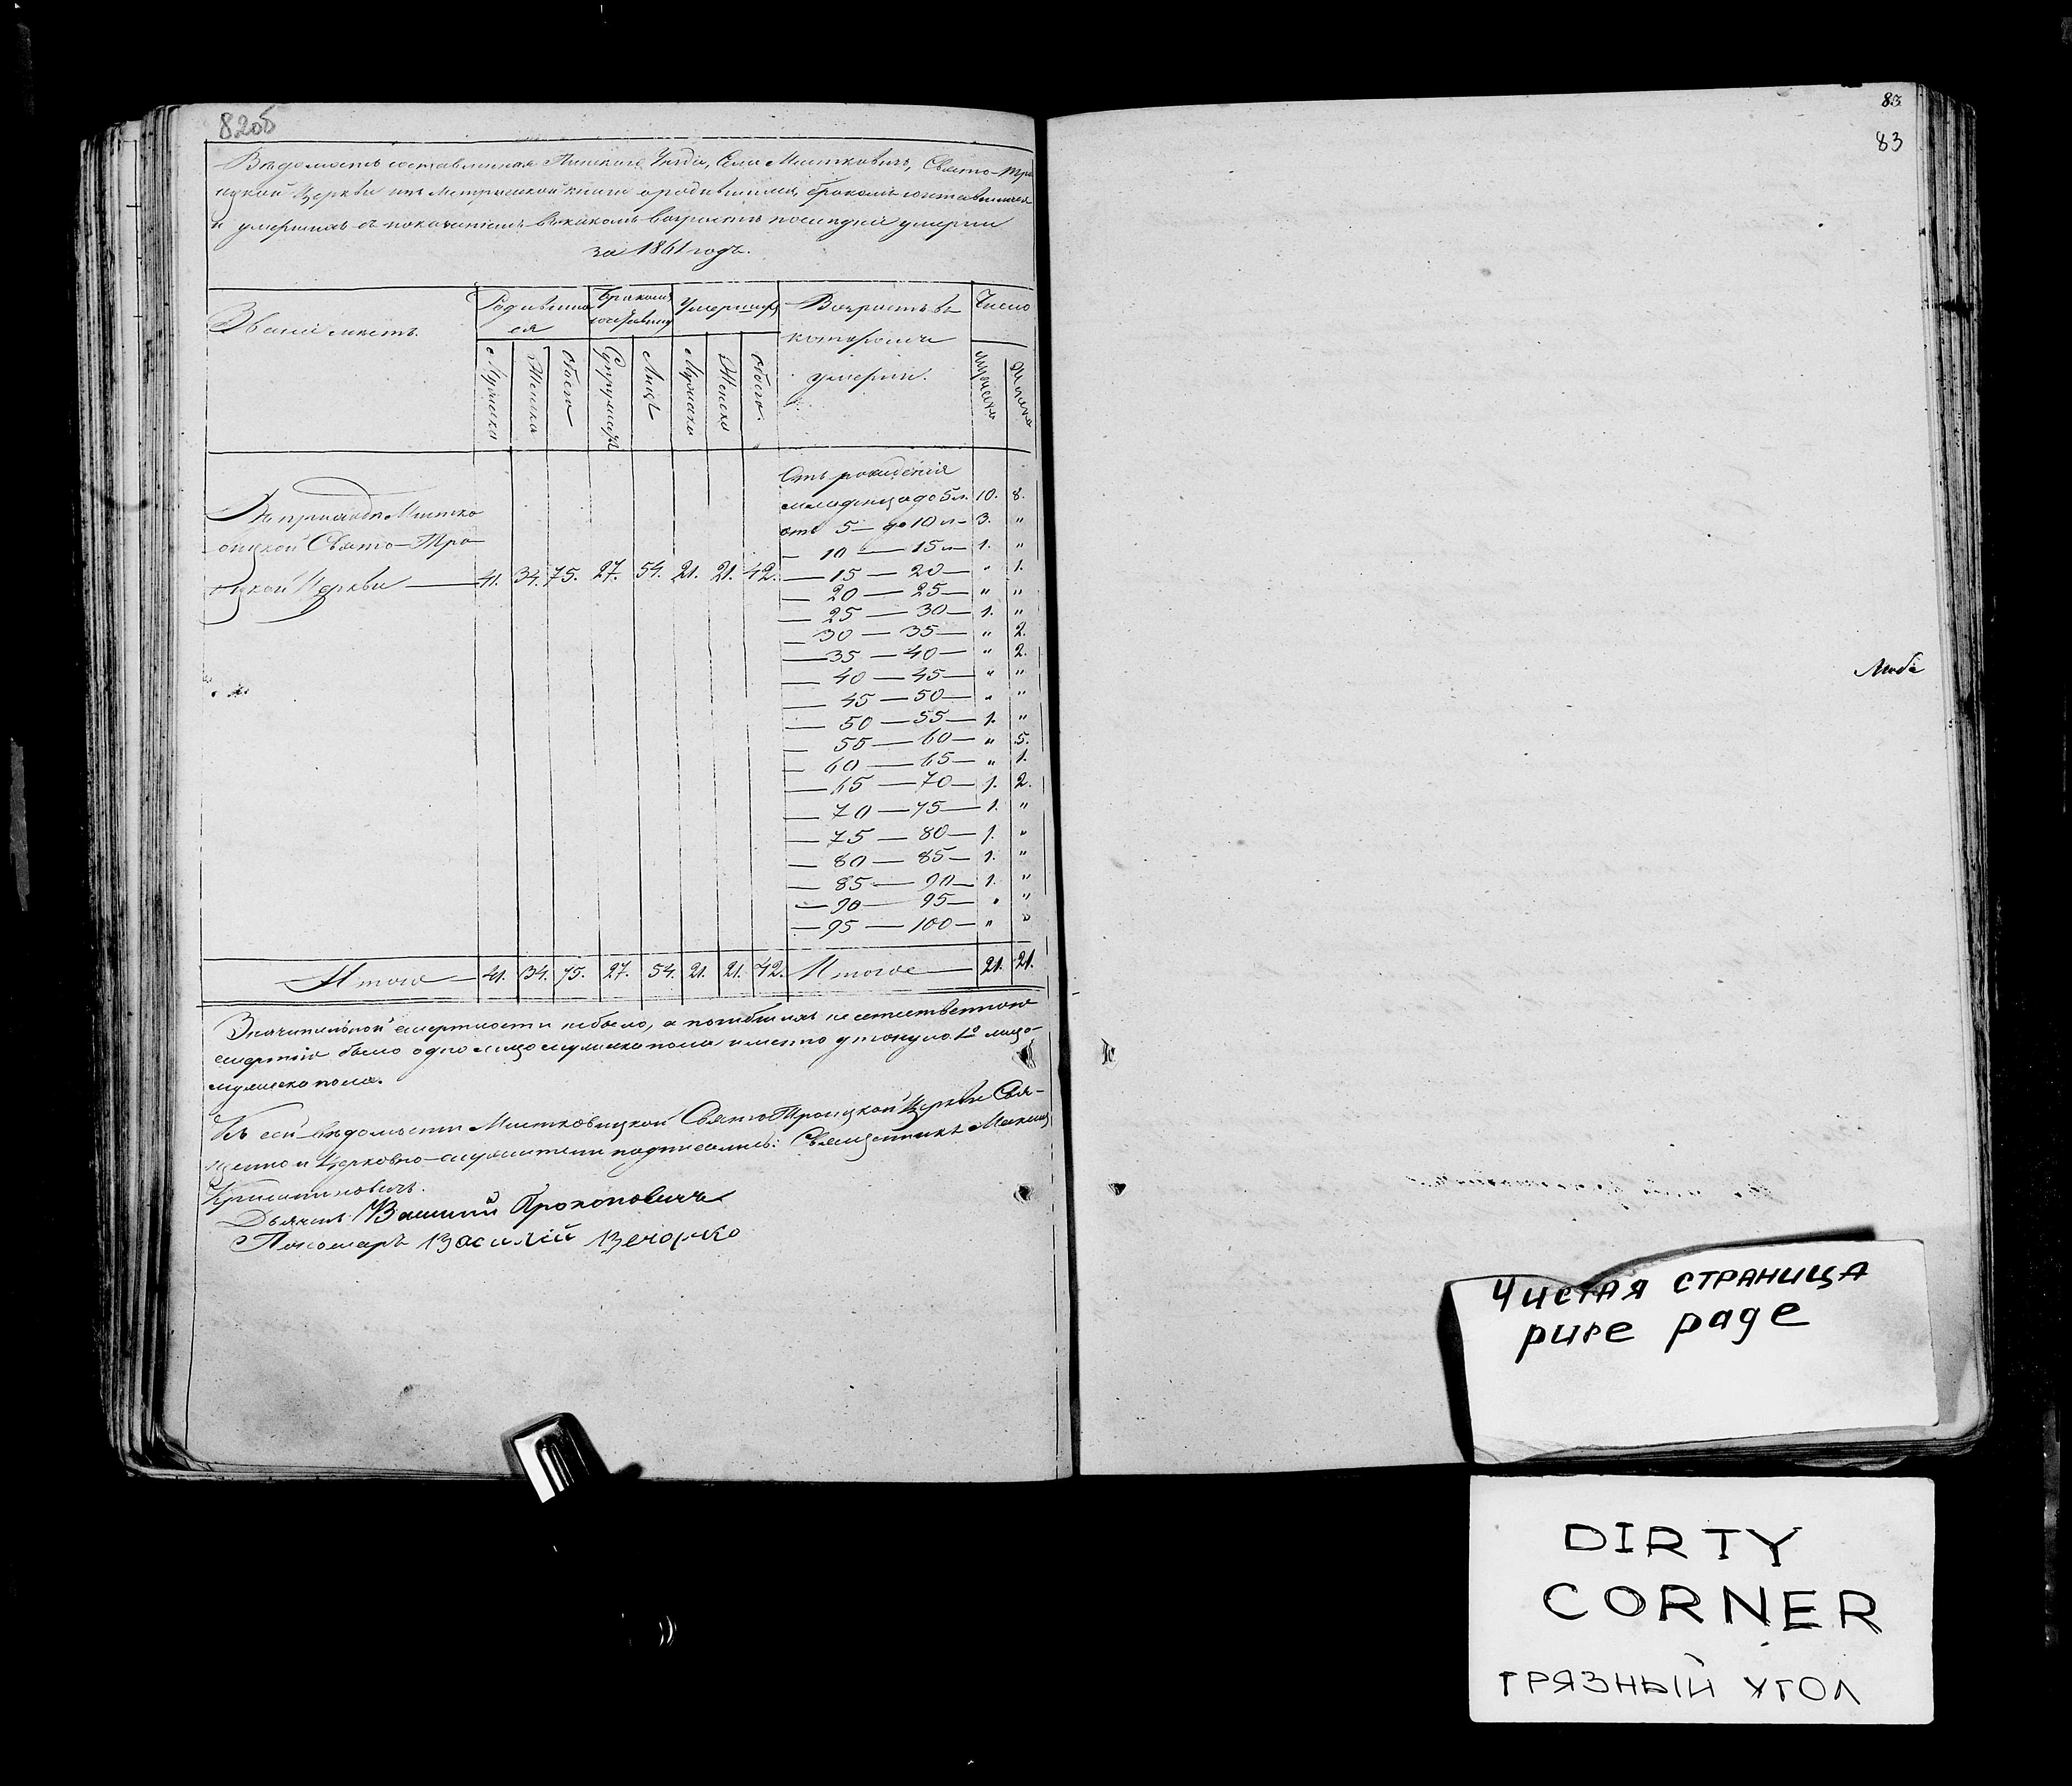 82об
Вѣдомость составленная Пинскаго Уѣзда, Села Местковичъ, Свято-Тро
ицкой Церкви изъ Метрической книги о родившихся, бракомъ сочетавшихся
и умершихъ съ показаніемъ въ какомъ возрастѣ послѣдніе умерли
за 1861 годъ.
Званіе мѣстъ.
Родивших
ся
Бракомъ
Умершихъ
Возрастъ въ
которомъ
умерли.
Число
Мужеска
Женска
Обоего
Супружествъ
Лицъ
Мужеска
Женска
Обоего
Мужеска
Женска
Отъ рожденія
младенца до 5 л. 10. 8.
отъ 5 — до 10 л — 3. "
— 10 — 15 л — 1. "
Въ приходѣ Местко
вицкой Свято-Тро
ицкой Церкви — 41. 34. 75. 27. 54. 21. 21. 42.
— 15 — 20 — " 1.
— 20 — 25 — " "
— 25 — 30 — 1. "
— 30 — 35 — " 2.
— 35 — 40 — " 2.
— 40 — 45 — " "
— 45 — 50 — " "
— 50 — 55 — 1. "
— 55 — 60 — " 5.
— 60 — 65 — " 1.
— 65 — 70 — 1. 2.
— 70 — 75 — 1. "
— 75 — 80 — 1. "
— 80 — 85 — 1. "
— 85 — 90 — 1. "
— 90 — 95 — " "
— 95 — 100 — " "
Итого — 41. 34. 75. 27. 54. 21. 21. 42. Итого — 21. 21.
Значительной смертности не было, а погибшихъ неестественною
смертію было одно лицо мужеска пола именно утонуло 1о лицо
мужеска пола.
Къ сей вѣдомости Местковицкой Свято Троицкой Церкви Свя-
щенно и Церковно-служители подписались: Священникъ
Дьячекъ Василій Прокоповичъ
Пономарь Василій Вечорко
83
83
Чистая страница
pure page
DIRTY
CORNER
грязный угол